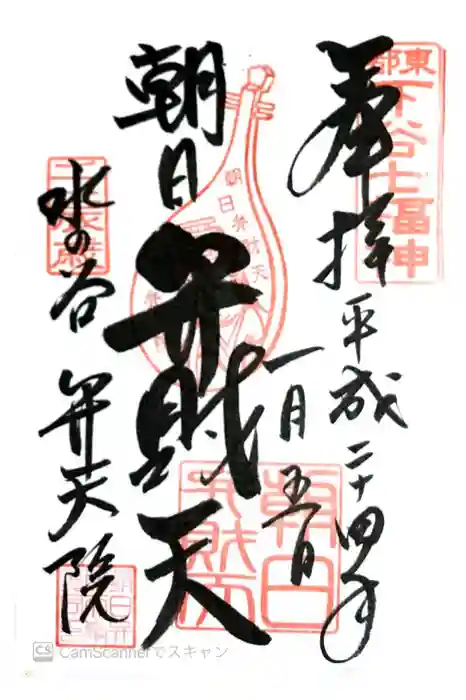 奉拝
平成二十四年
一月五日
朝日弁財天
水の谷
弁天院
東都
下谷七福神
朝日弁財天
朝日
弁財天
CamScannerでスキャン